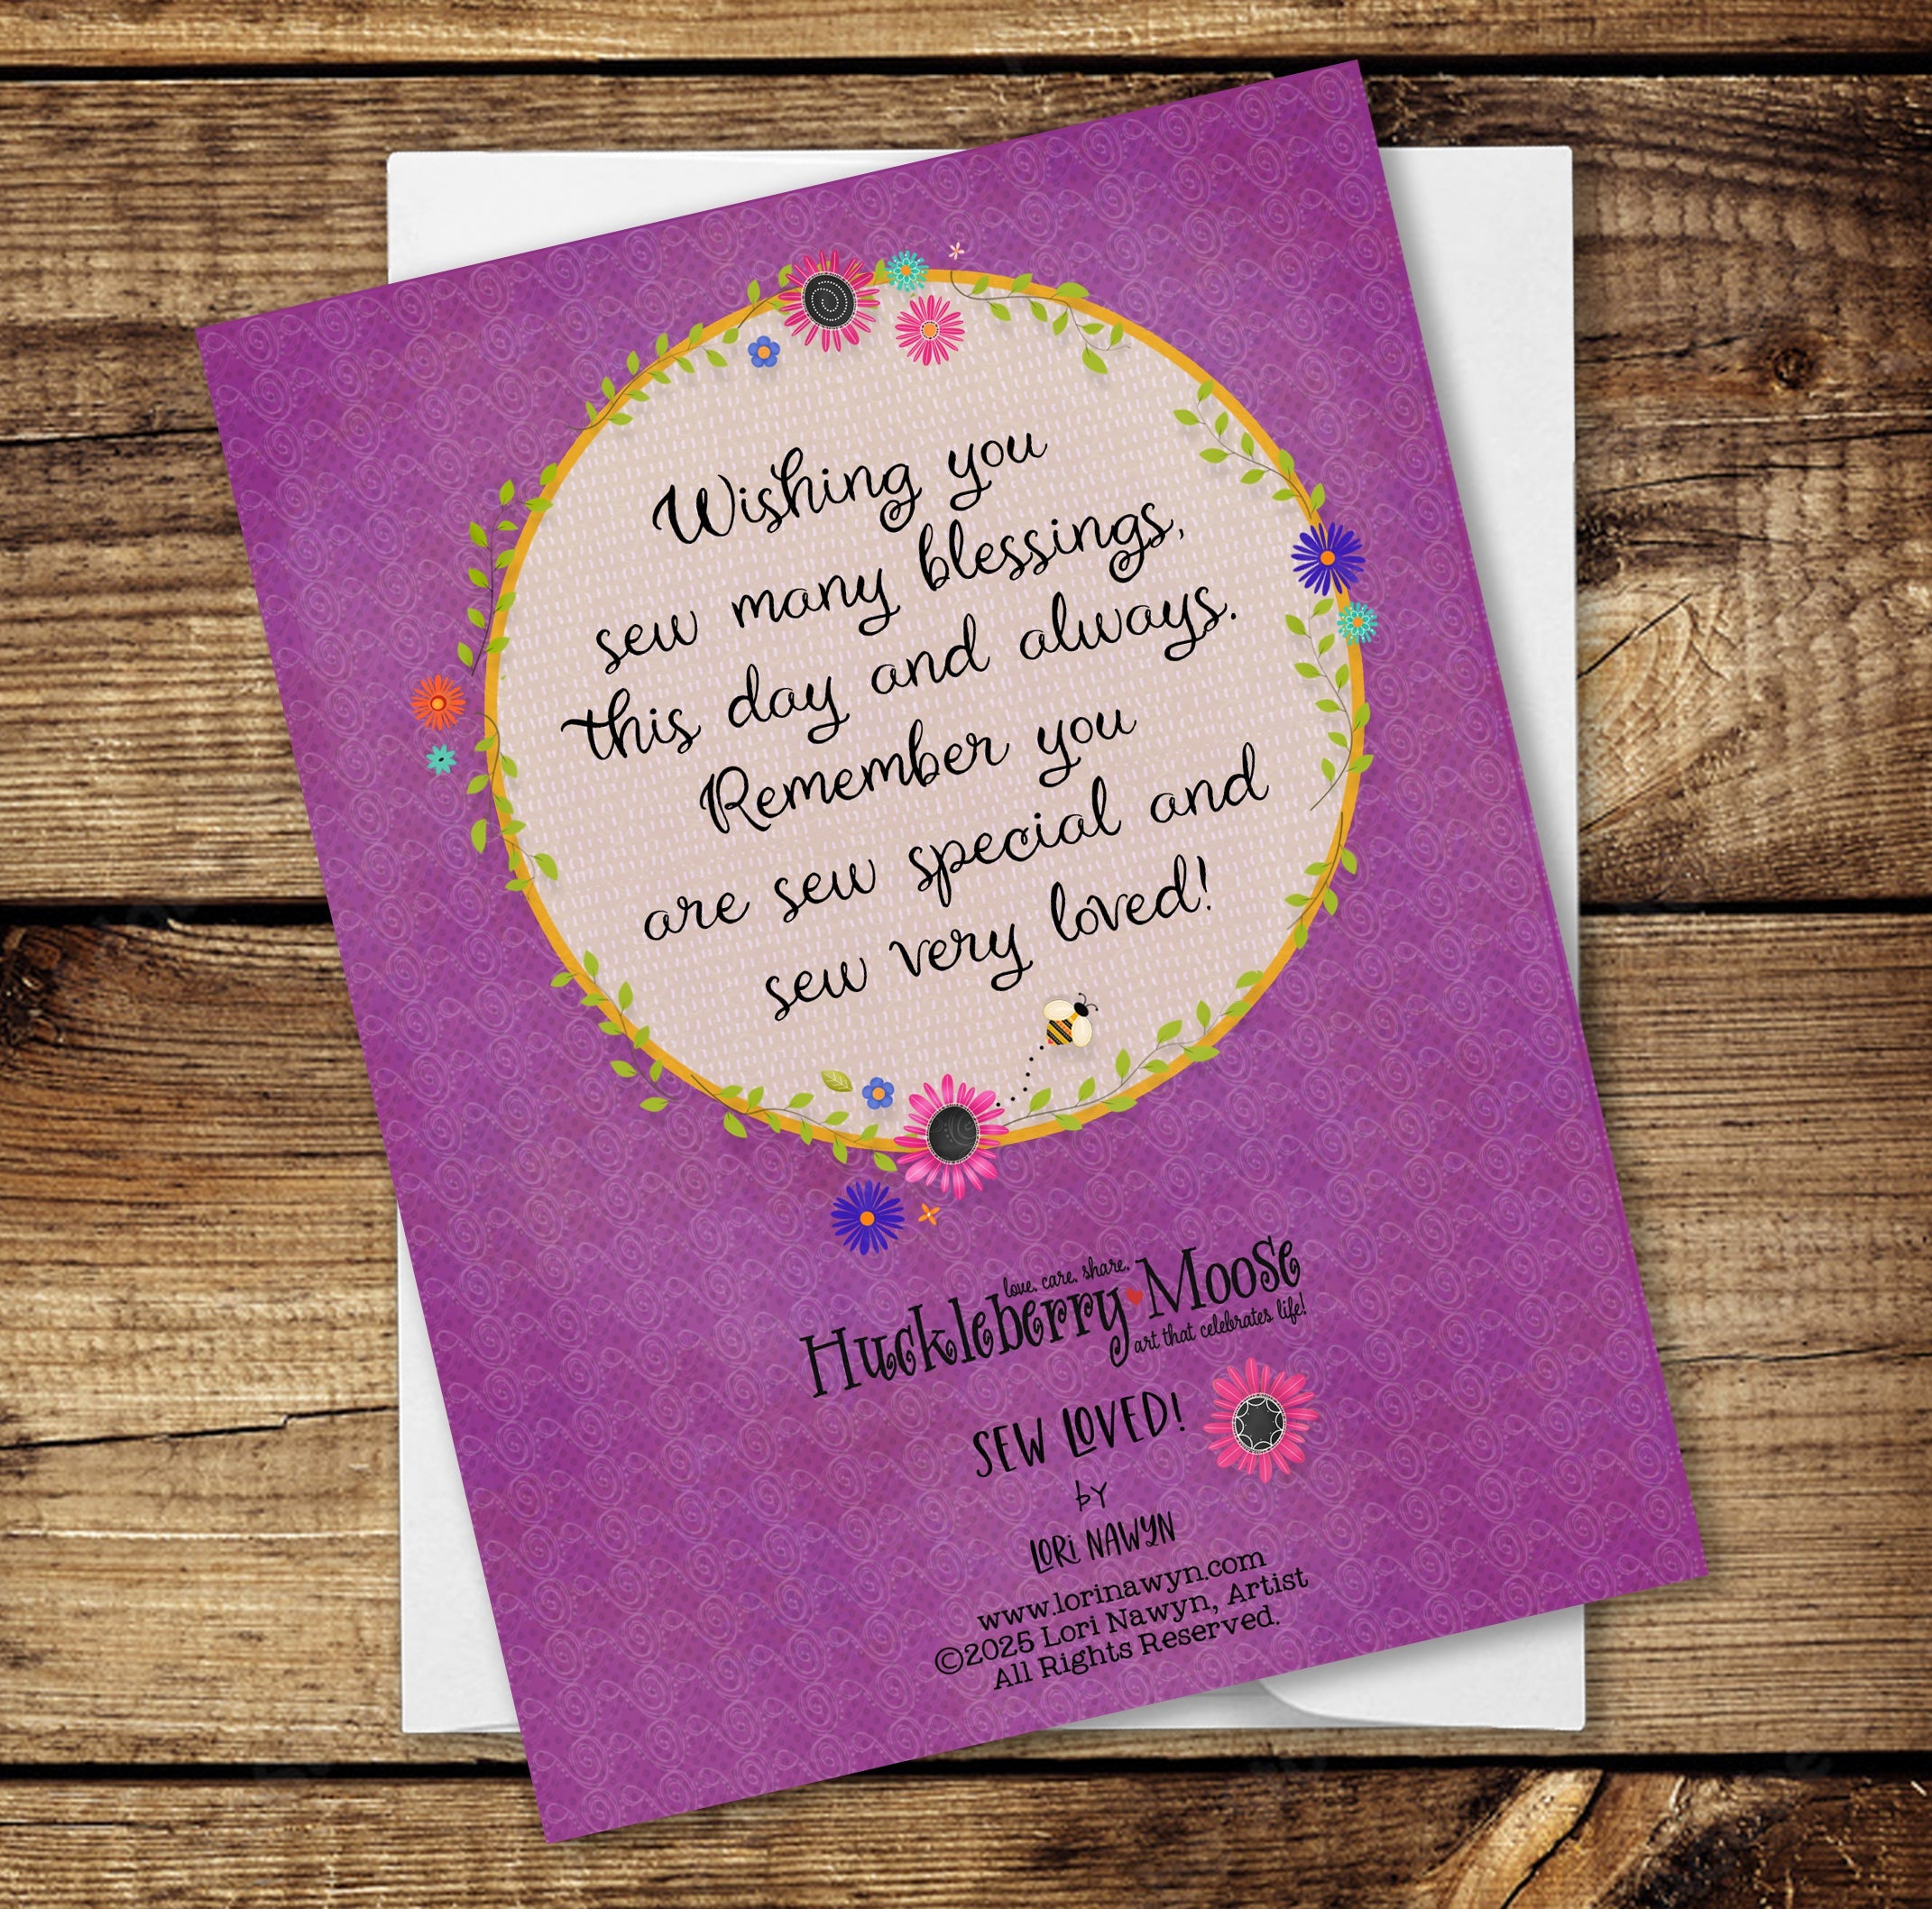 Wishing you
sew many blessings,
this day and always.
Remember you
are sew special and
sew very loved!
love. care. share.
Huckleberry Moose
art that celebrates life!
SEW LOVED!
by
LORi NAWYN
www.lorinawyn.com
©2025 Lori Nawyn, Artist
All Rights Reserved.